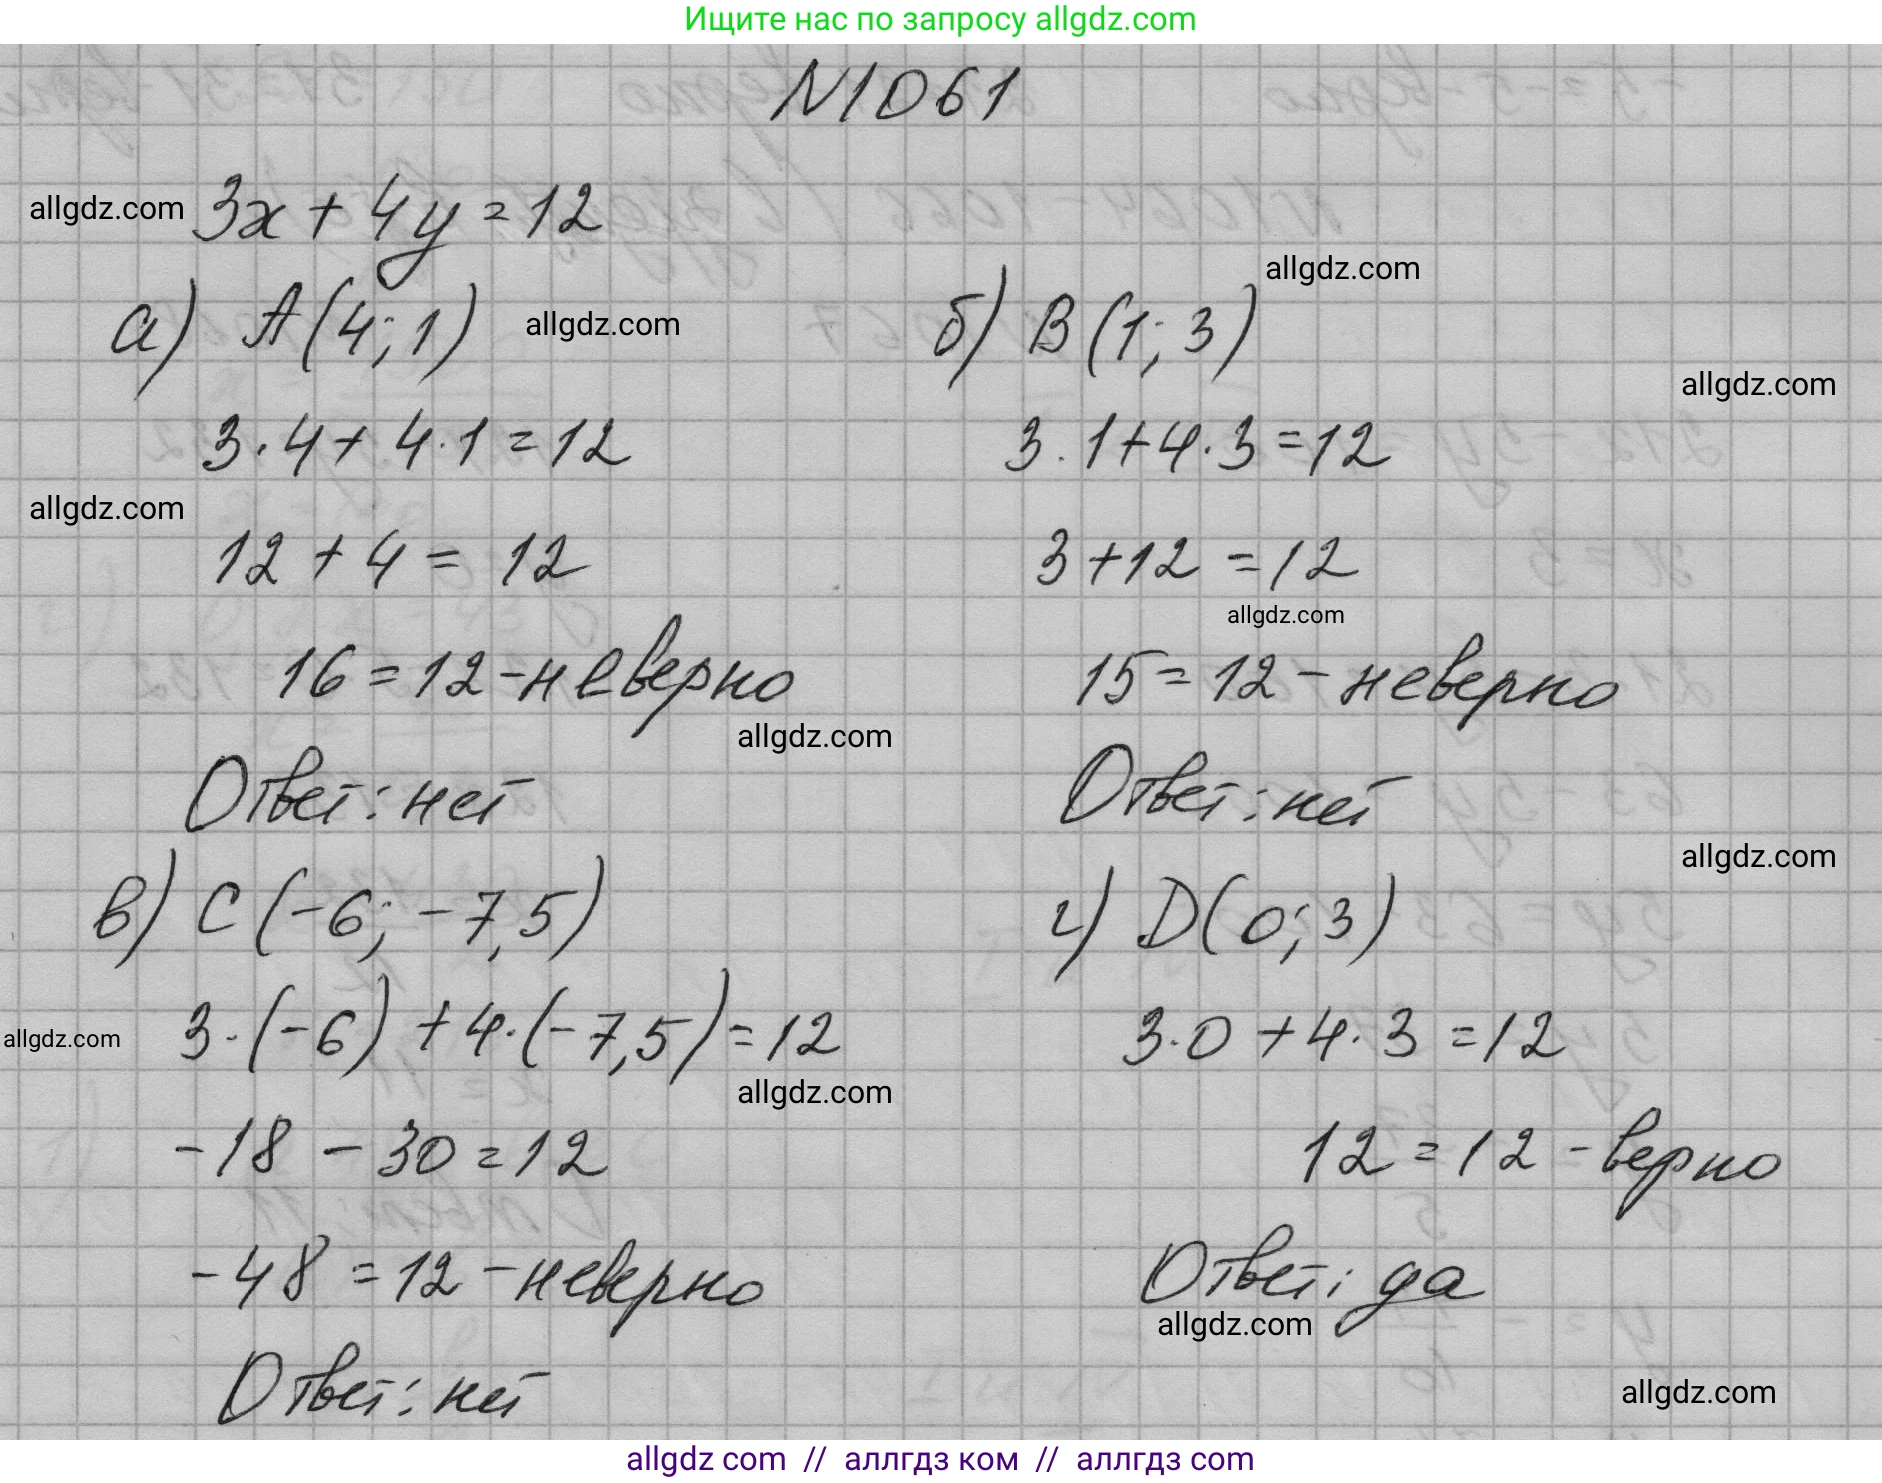 Ищите нас по запросу allgdz.com
N1061
allgdz.com
3x + 4y = 12
allgdz.com
а) A(4; 1)
allgdz.com
б) B(1; 3)
allgdz.com
3·4 + 4·1 = 12
3·1 + 4·3 = 12
allgdz.com
12 + 4 = 12
3 + 12 = 12
allgdz.com
16 = 12 - неверно
15 = 12 - неверно
allgdz.com
Ответ: нет
Ответ: нет
allgdz.com
в) C(-6; -7,5)
г) D(0; 3)
allgdz.com
3·(-6) + 4·(-7,5) = 12
3·0 + 4·3 = 12
allgdz.com
-18 - 30 = 12
12 = 12 - верно
-48 = 12 - неверно
Ответ: да
allgdz.com
Ответ: нет
allgdz.com
allgdz com // аллгдз ком // аллгдз com